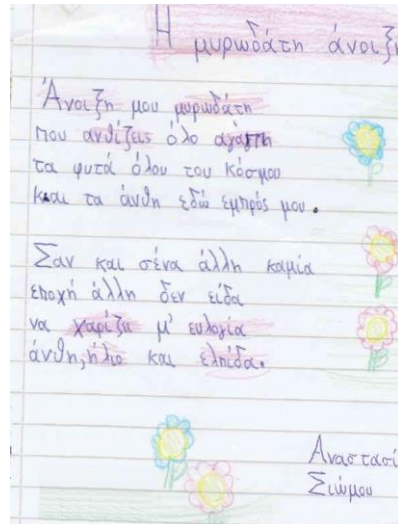 Η μυρωδάτη άνοιξη
Άνοιξη μου μυρωδάτη
που ανθίζεις όλο αγάπη
τα φυτά όλου του κόσμου
και τα άνθη εδώ εμπρός μου.
Σαν και σένα άλλη καμία
εποχή άλλη δεν είδα
να χαρίζει μ' ευλογία
άνθη, ήλιο και ελπίδα.
Αναστασί
Σιώμου